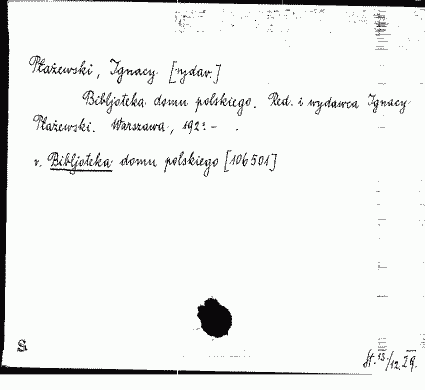 Płażewski, Ignacy [wydaw.]
Bibljoteka domu polskiego. Red. i wydawca Ignacy
Płażewski. Warszawa, 192: - .
v. Bibljoteka domu polskiego [106501]
S